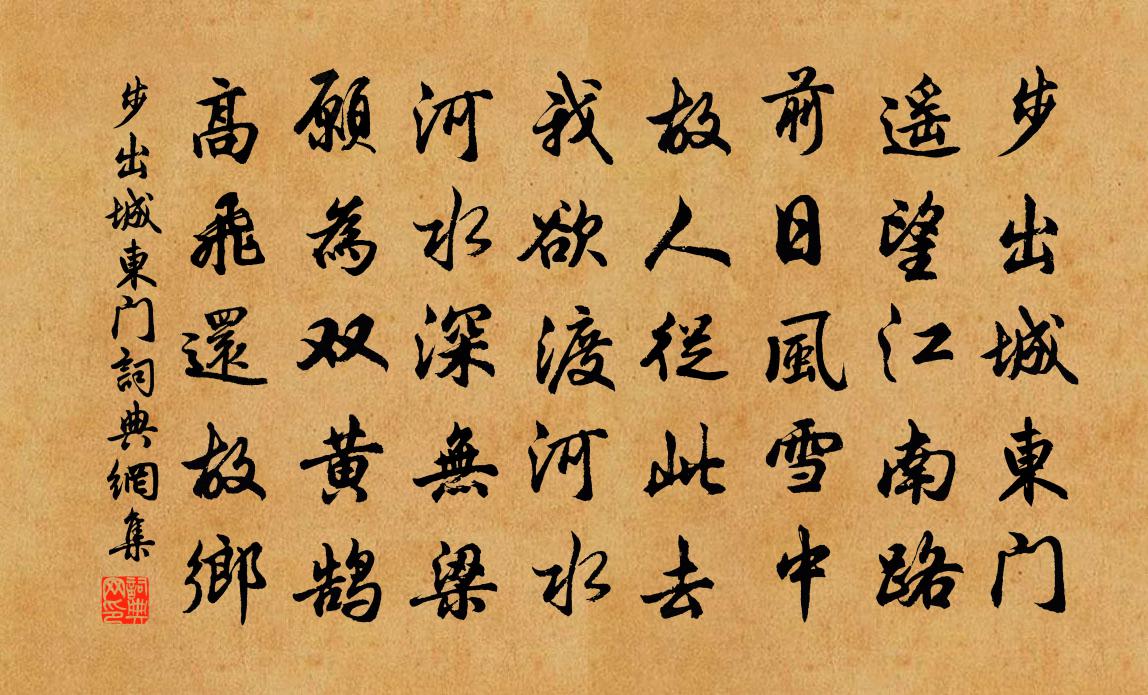 步出城東门
遥望江南路
前日風雪中
故人從此去
我欲渡河水
河水深無梁
願為双黄鹄
高飛還故鄉
步出城東门詞典網集
詞典
网印